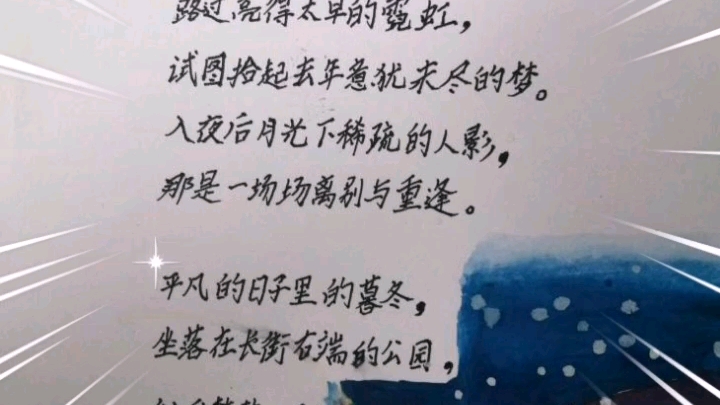 路过亮得太早的霓虹，
试图拾起去年意犹未尽的梦。
入夜后月光下稀疏的人影，
那是一场场离别与重逢。
平凡的日子里的暮冬，
坐落在长街右端的公园，